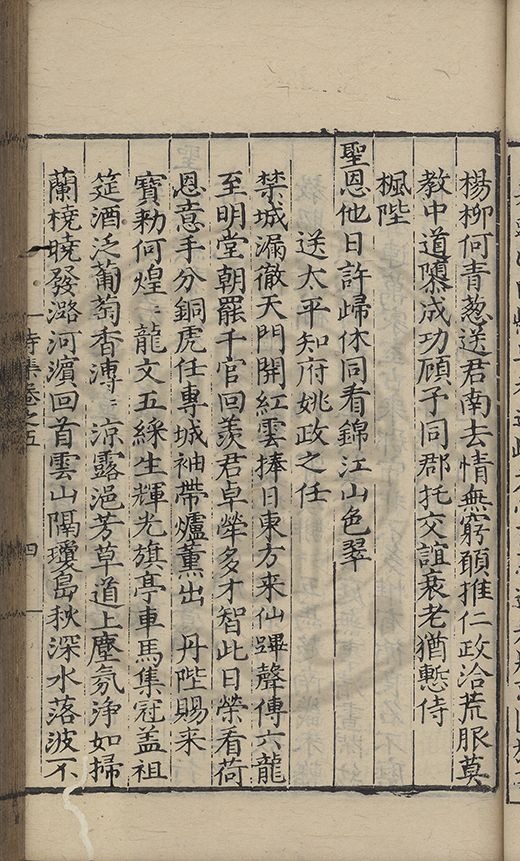 楊柳何青葱送君南去情無窮願推仁政洽荒服莫
教中道隳成功顧予同郡托交誼衰老猶慙侍
楓陛
聖恩他日許歸休同看錦江山色翠
送太平知府姚政之任
禁城漏徹天門開紅雲捧日東方来仙蹕聲傳六龍
至明堂朝罷千官回羡君卓犖多才智此日榮看荷
恩意手分銅虎任專城袖帶爐薰出 丹陛賜来
寶勑何煌〻龍文五綵生輝光旗亭車馬集冠盖祖
筵酒泛葡萄香漙〻凉露浥芳草道上塵氛浄如掃
蘭橈曉發潞河濵回首雲山隔瓊島秋深水落波不
詩集卷之五
四